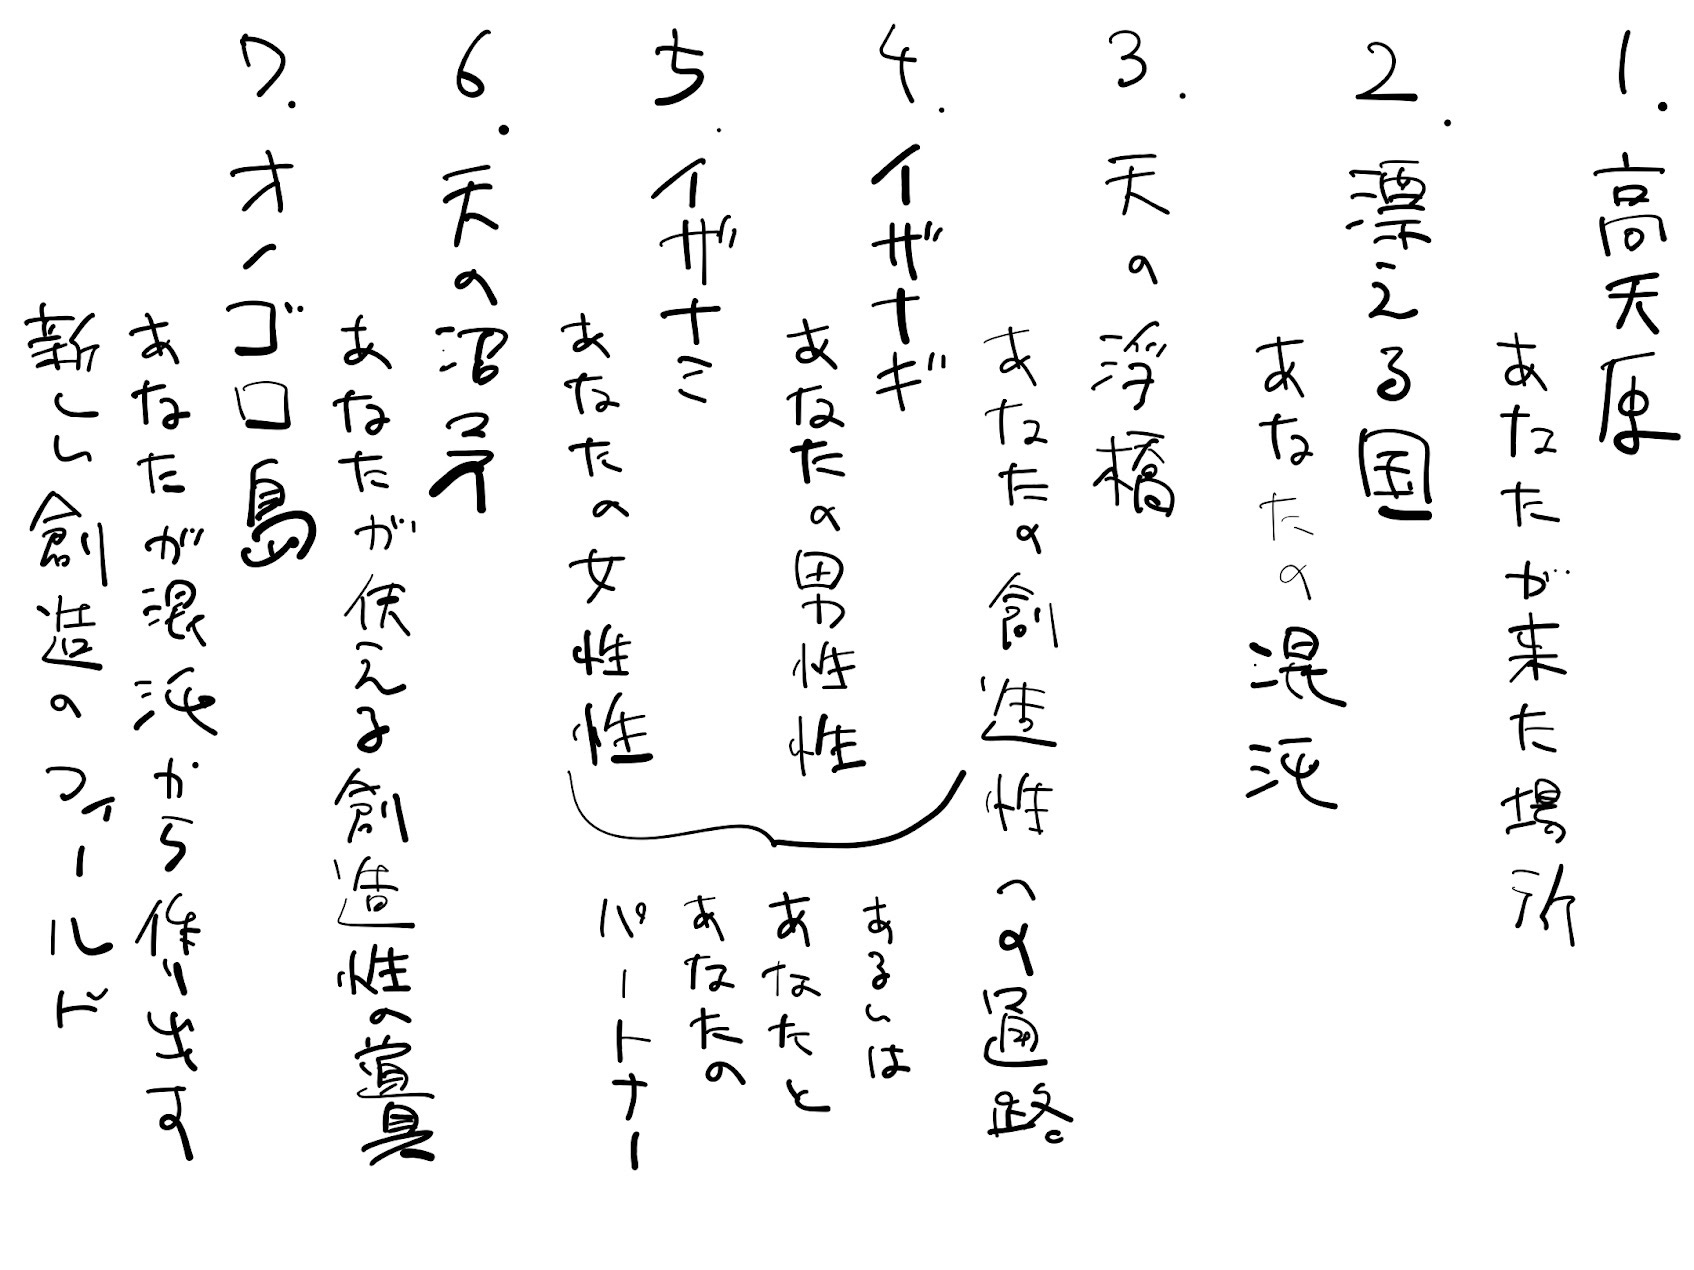 1.高天原
あなたが来た場所
2.漂える国
あなたの混沌
3.天の浮橋
あなたの創造性への通路。
4.イザナギ
あなたの男性性
5.イザナミ
あなたの女性性
あるいは
あなたと
あなたの
パートナー
6.天の沼矛
あなたが使える創造性の道具
7.オノゴロ島
あなたが混沌から作り出す
新しい創造のフィールド